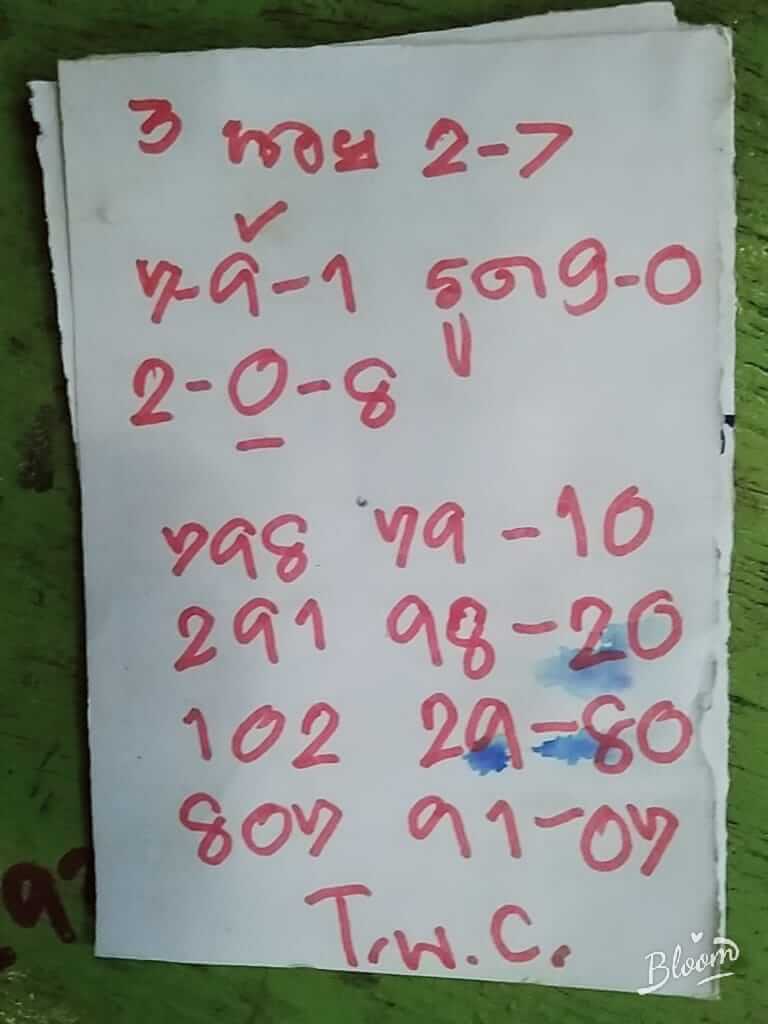 3 หอย 2-7
7-9-1 รูด 9-0
2-0-8
798 79-10
291 98-20
102 29-80
807 91-07
T.พ.C.
Bloom